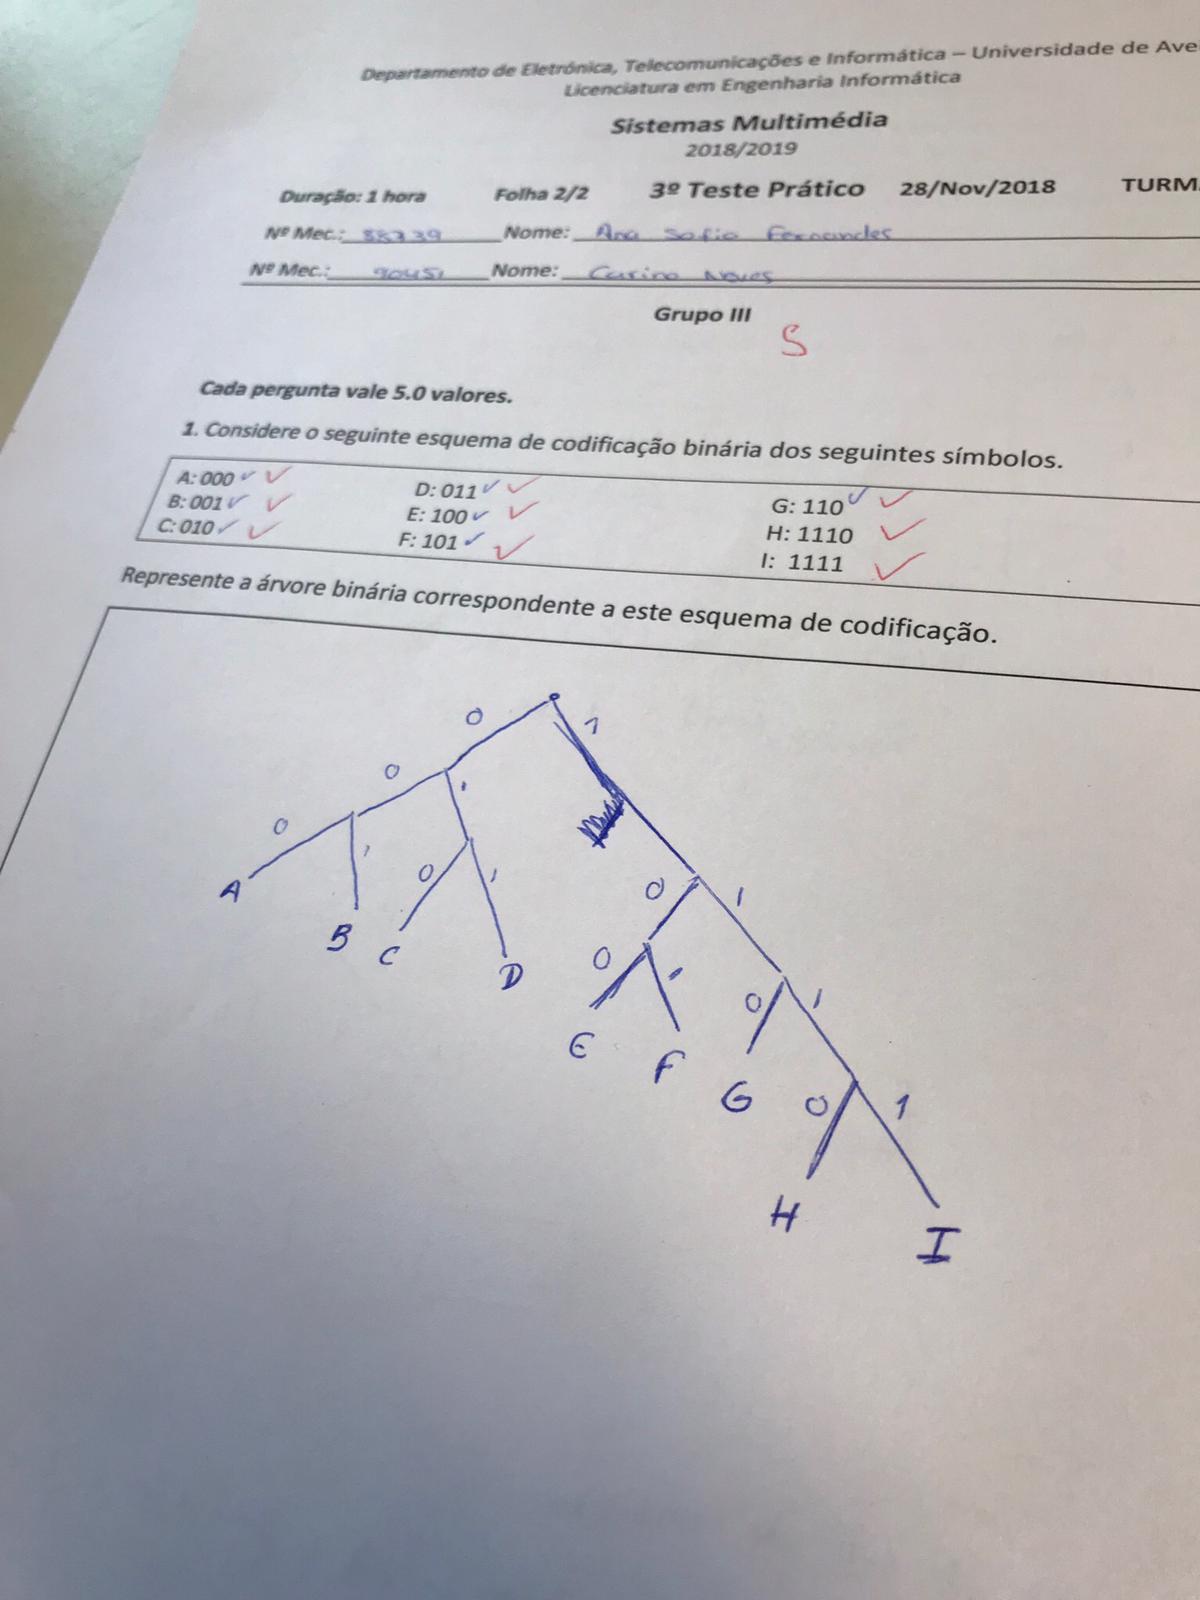 Departamento de Eletrónica, Telecomunicações e Informática – Universidade de Ave
Licenciatura em Engenharia Informática
Sistemas Multimédia
2018/2019
Duração: 1 hora Folha 2/2 3º Teste Prático 28/Nov/2018 TURM
Nº Mec.: 88739 Nome: Ana Sofia Fernandes
Nº Mec.: 90451 Nome: Carina Neves
Grupo III
5
Cada pergunta vale 5.0 valores.
1. Considere o seguinte esquema de codificação binária dos seguintes símbolos.
A: 000 D: 011 G: 110
B: 001 E: 100 H: 1110
C: 010 F: 101 I: 1111
Represente a árvore binária correspondente a este esquema de codificação.
0 1
0 1
0 1 0 1 0 1
A B C D
0 1 0 1
E F G
0 1
H I